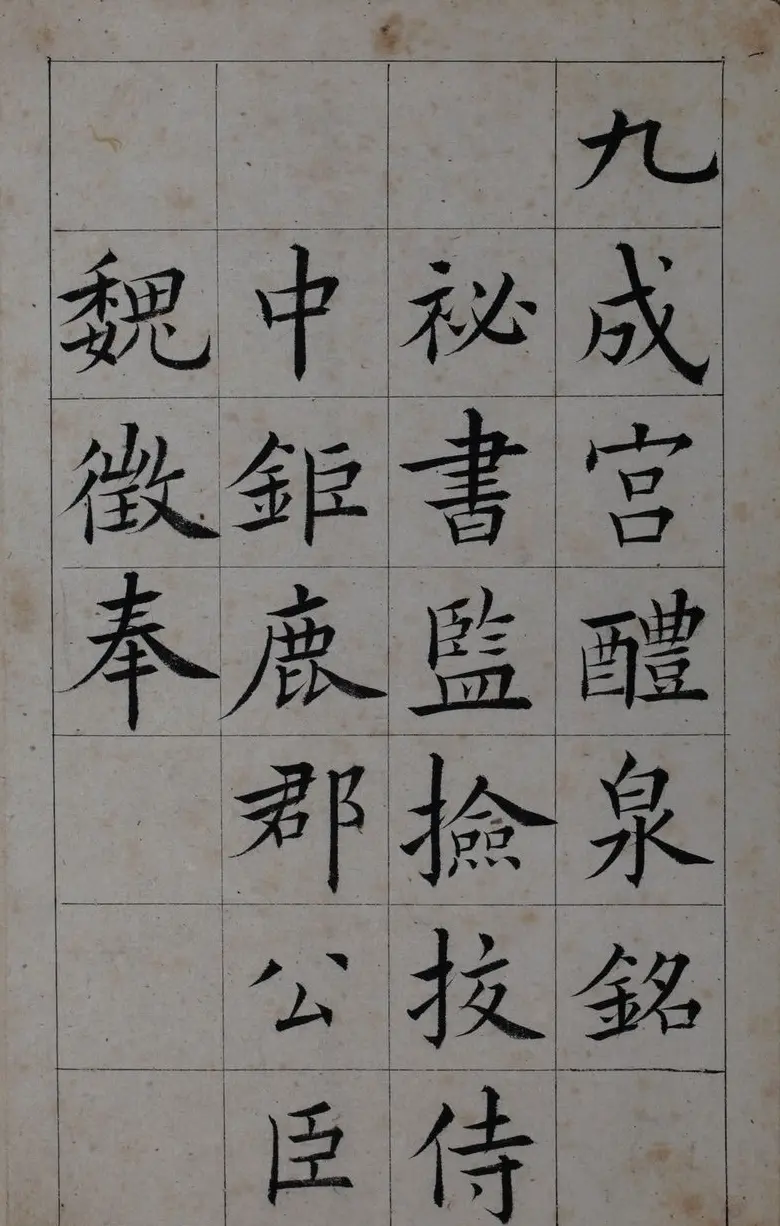 九成宮醴泉銘
祕書監撿挍侍
中鉅鹿郡公臣
魏徵奉